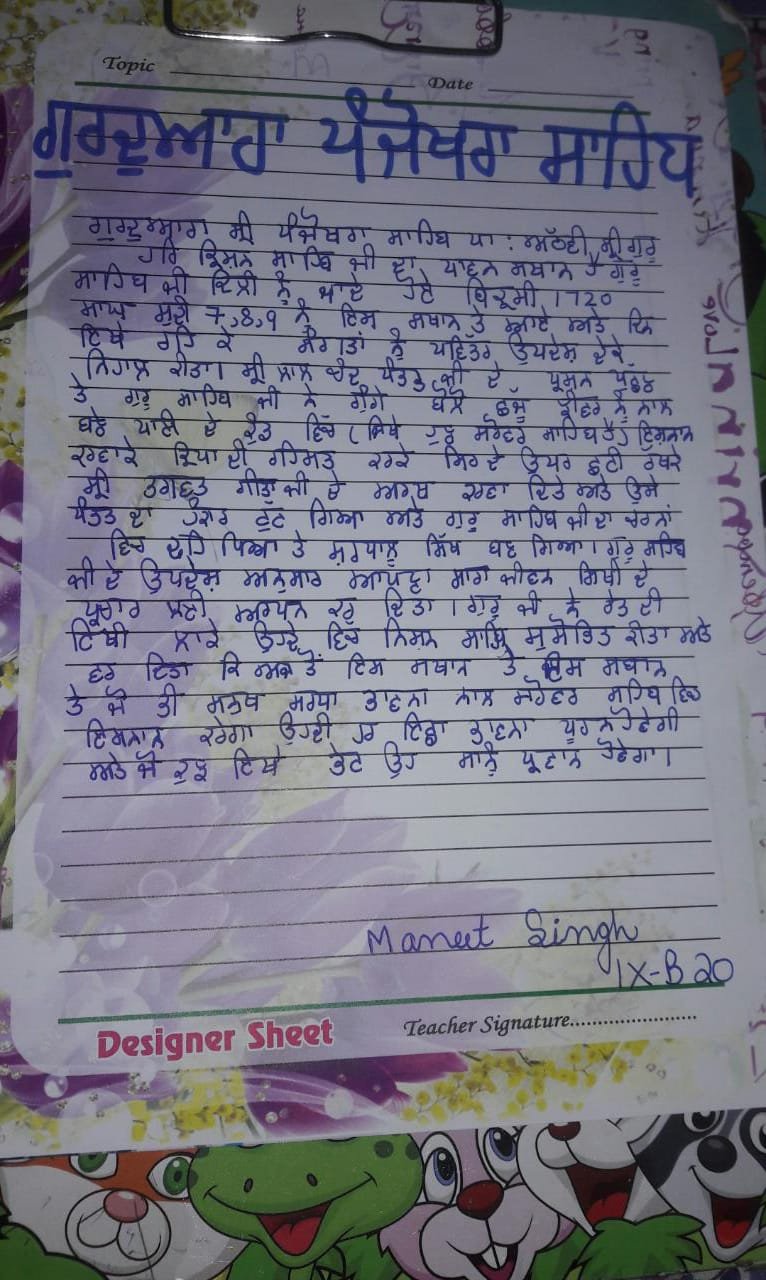 Topic
Date
ਗੁਰਦੁਆਰਾ ਪੰਜੋਖਰਾ ਸਾਹਿਬ
ਗੁਰਦੁਆਰਾ ਸ੍ਰੀ ਪੰਜੋਖਰਾ ਸਾਹਿਬ ਪਾ: ਅੱਠਵੀਂ ਸ੍ਰੀ ਗੁਰੂ
ਹਰਿ ਕ੍ਰਿਸ਼ਨ ਸਾਹਿਬ ਜੀ ਦਾ ਪਾਵਨ ਸਥਾਨ ਹੈ ਗੁਰੂ
ਸਾਹਿਬ ਜੀ ਦਿੱਲੀ ਨੂੰ ਜਾਂਦੇ ਹੋਏ ਬਿਕ੍ਰਮੀ 1720
ਮਾਘ ਸੁਦੀ 7,8,9 ਨੂੰ ਇਸ ਸਥਾਨ ਤੇ ਆਏ ਅਤੇ ਦਿਨ
ਇਥੇ ਰਹਿ ਕੇ ਸੰਗਤਾਂ ਨੂੰ ਪਵਿੱਤਰ ਉਪਦੇਸ਼ ਦੇਕੇ
ਨਿਹਾਲ ਕੀਤਾ। ਸ੍ਰੀ ਲਾਲ ਚੰਦ ਪੰਡਤ ਜੀ ਦੇ ਪ੍ਰਸ਼ਨ ਪੁੱਛਣ
ਤੇ ਗੁਰੂ ਸਾਹਿਬ ਜੀ ਨੇ ਗੂੰਗੇ ਬੋਲੇ ਛੱਜੂ ਝੀਵਰ ਨੂੰ ਨਾਲ
ਬਣੇ ਪਾਣੀ ਦੇ ਵਿੱਚ (ਜਿਥੇ ਹੁਣ ਸਰੋਵਰ ਸਾਹਿਬ ਹੈ) ਇਸ਼ਨਾਨ
ਕਰਵਾਕੇ ਕ੍ਰਿਪਾ ਦੀ ਰਹਿਮਤ ਕਰਕੇ ਸਿਰ ਦੇ ਉਪਰ ਛਟੀ ਰੱਖਕੇ
ਸ੍ਰੀ ਭਗਵਤ ਗੀਤਾ ਜੀ ਦੇ ਅਰਥ ਕਰਵਾ ਦਿੱਤੇ ਅਤੇ ਉਸ
ਪੰਡਤ ਦਾ ਹੰਕਾਰ ਟੁੱਟ ਗਿਆ ਅਤੇ ਗੁਰੂ ਸਾਹਿਬ ਜੀ ਦਾ ਚਰਨਾਂ
ਵਿਚ ਢਹਿ ਪਿਆ ਤੇ ਸ਼ਰਧਾਲੂ ਸਿੱਖ ਬਣ ਗਿਆ। ਗੁਰੂ ਸਾਹਿਬ
ਜੀ ਦੇ ਉਪਦੇਸ਼ ਅਨੁਸਾਰ ਆਪਣਾ ਸਾਰਾ ਜੀਵਨ ਸਿਖੀ ਦੇ
ਪ੍ਰਚਾਰ ਲਈ ਅਰਪਨ ਕਰ ਦਿਤਾ। ਗੁਰੂ ਜੀ ਨੇ ਰੇਤ ਦੀ
ਟਿਬੀ ਲਾਕੇ ਉਹਦੇ ਵਿਚ ਨਿਸ਼ਾਨ ਸਾਹਿਬ ਸੁਸ਼ੋਭਿਤ ਕੀਤਾ ਅਤੇ
ਵਰ ਦਿਤਾ ਕਿ ਅਜ ਤੋਂ ਇਸ ਸਥਾਨ ਤੇ ਇਸ ਸਥਾਨ
ਤੇ ਜੋ ਭੀ ਸ਼ਰਧਾ ਭਾਵਨਾ ਨਾਲ ਸਰੋਵਰ ਸਾਹਿਬ ਵਿਚ
ਇਸ਼ਨਾਨ ਕਰੇਗਾ ਉਹਦੀ ਹਰ ਇੱਛਾ ਭਾਵਨਾ ਪੂਰਨ ਹੋਵੇਗੀ
ਅਤੇ ਜੋ ਕੁਝ ਇਥੇ ਭੇਟ ਉਹ ਸਾਨੂੰ ਪ੍ਰਵਾਨ ਹੋਵੇਗਾ।
Maneet Singh
IX-B 20
Designer Sheet
Teacher Signature......................